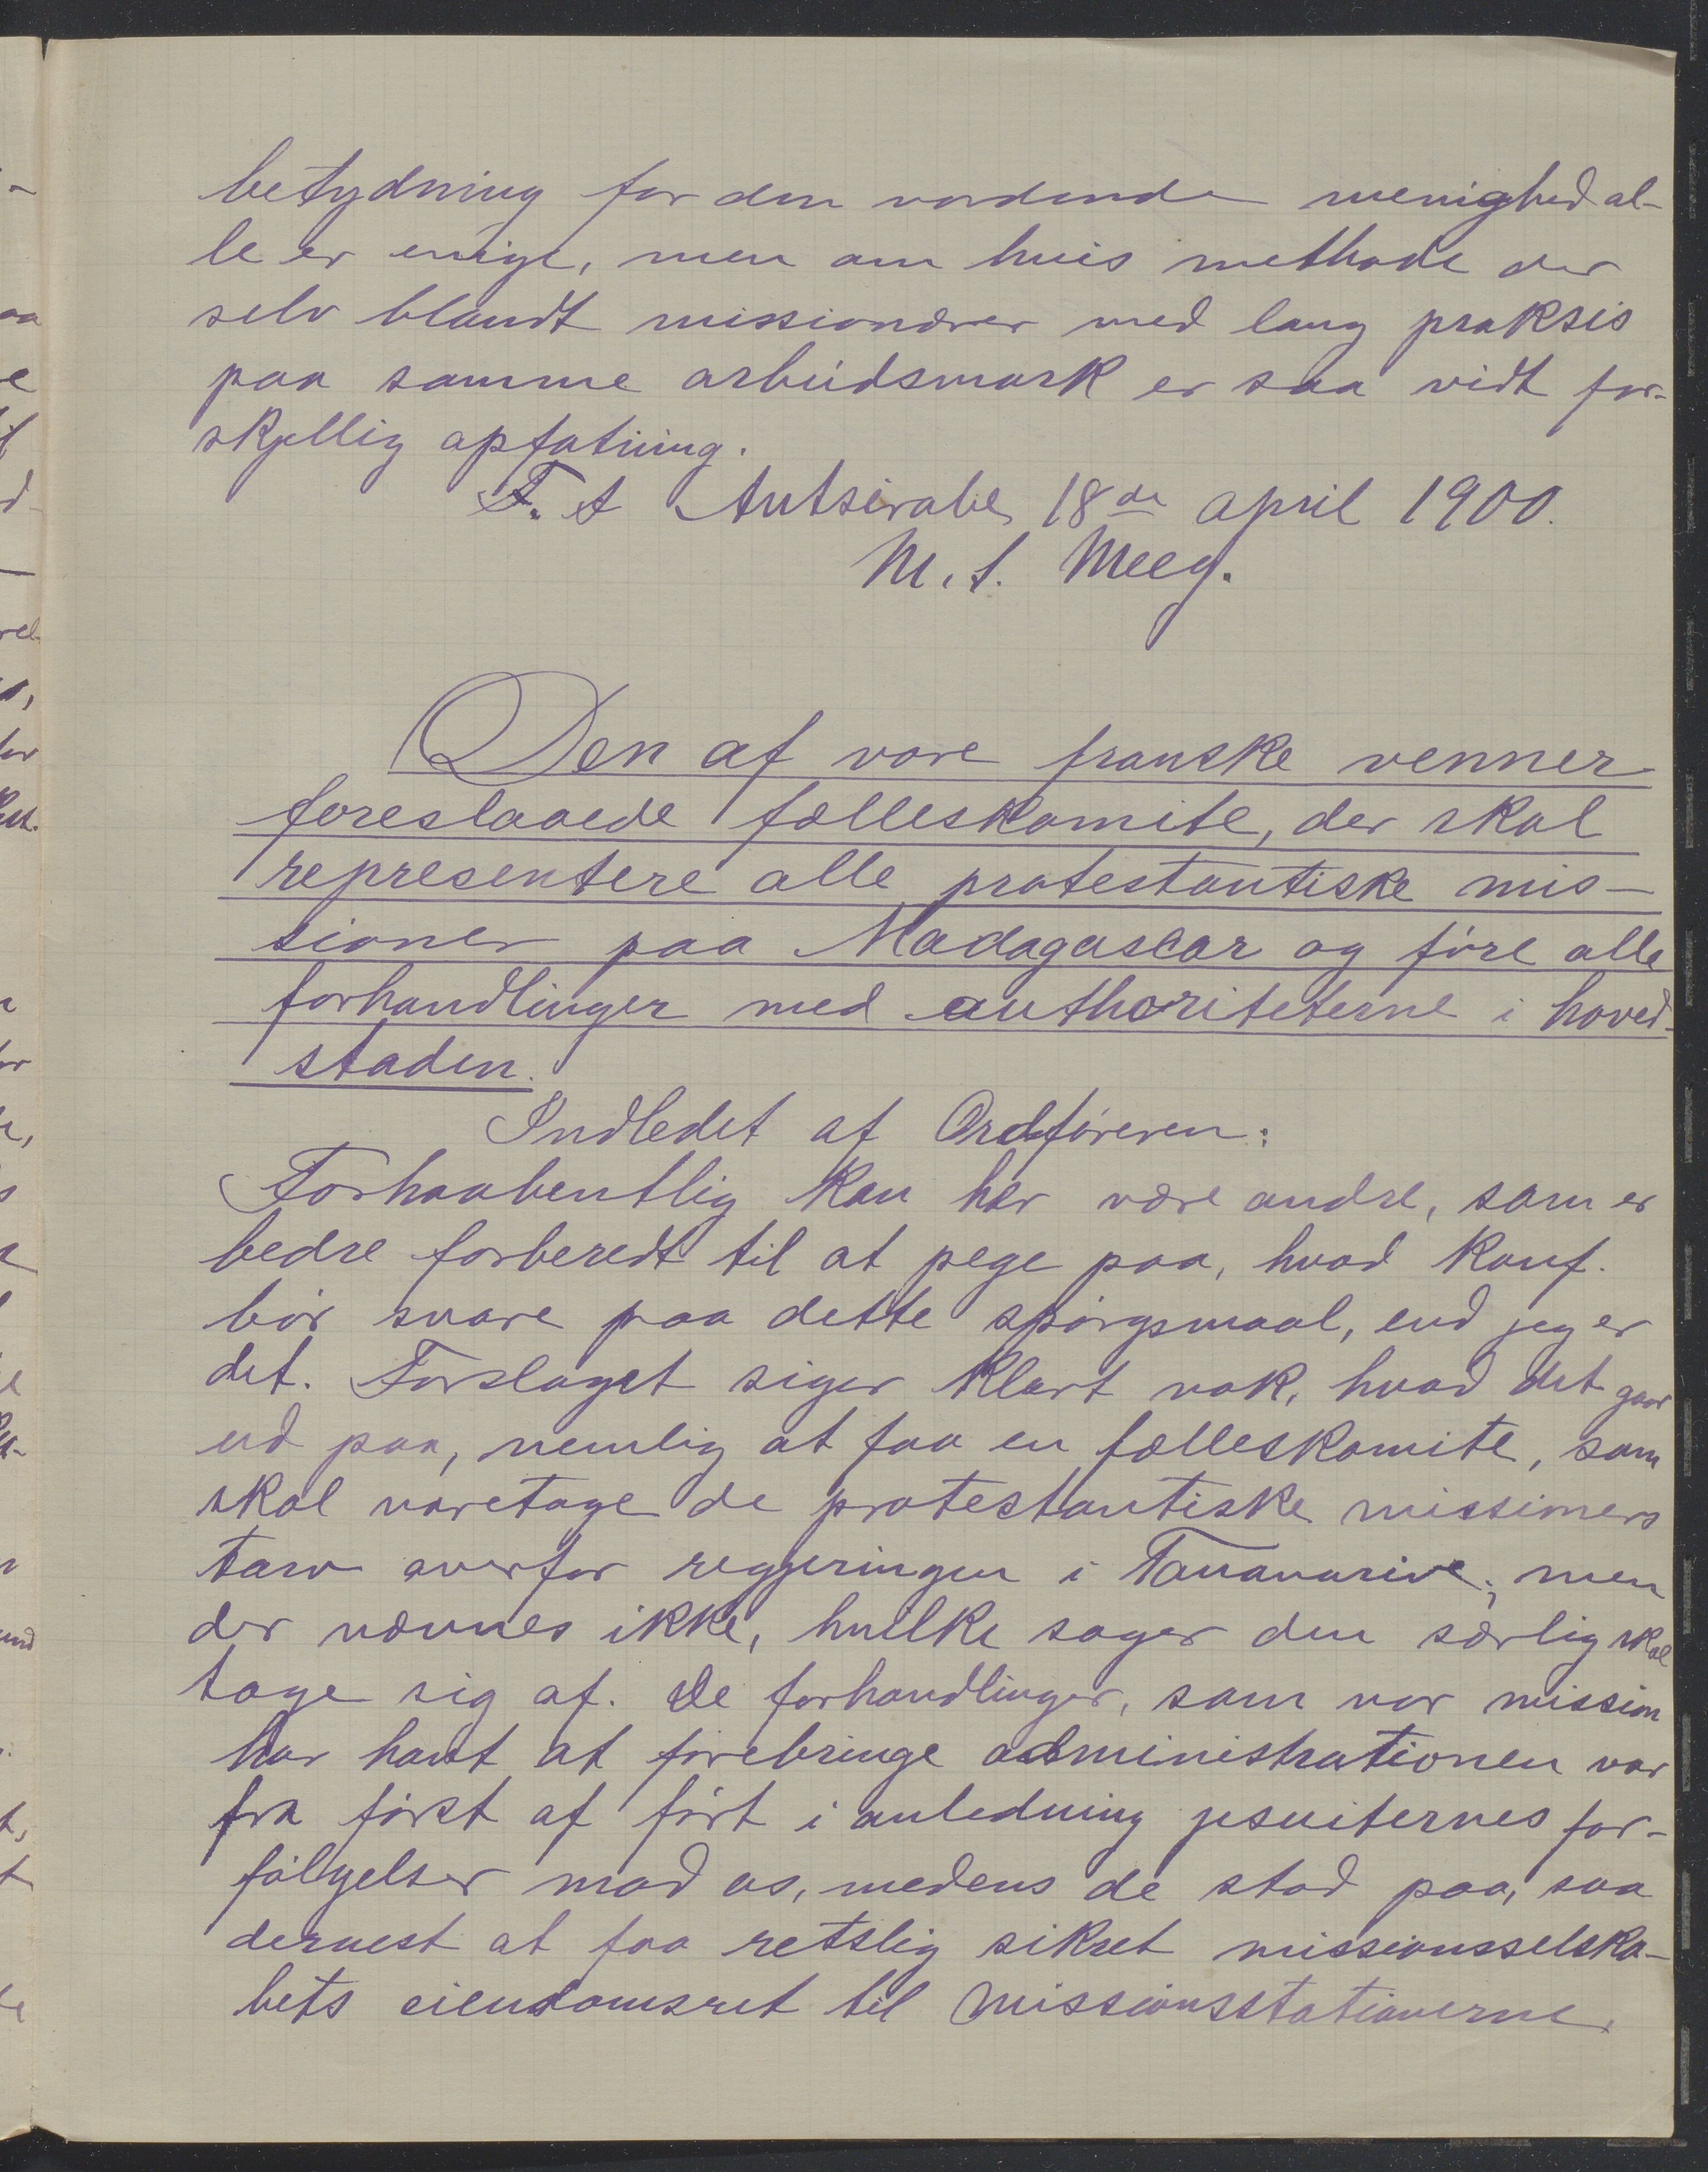 betydning for den vordende menighed al-
le er enige, men om hvis methode der
selv blandt missionærer med lang praksis
paa samme arbeidsmark er saa vidt for-
skjellig opfatning.
F. t Antsirabe, 18de april 1900.
M. S. Meeg.
Den af vore franske venner
foreslaaede fælleskomite, der skal
representere alle protestantiske mis-
sioner paa Madagascar og føre alle
forhandlinger med authoriteterne i hoved-
staden.
Indledet af Ordføreren:
Forhaabentlig kan her være andre, som er
bedre forberedt til at pege paa, hvad konf.
bør svare paa dette spørgsmaal, end jeg er
det. Forslaget siger klart nok, hvad det gaar
ud paa, nemlig at faa en fælleskomite, som
skal varetage de protestantiske missioners
tarv overfor regjeringen i Tananarive; men
der nævnes ikke, hvilke sager den særlig skal
tage sig af. De forhandlinger, som vor mission
har havt at forebringe administrationen var
fra først af ført i anledning jesuiternes for-
følgelser mod os, medens de stod paa, saa
dernest at faa retslig sikret missionsselska-
bets eiendomsret til Missionsstationerne.